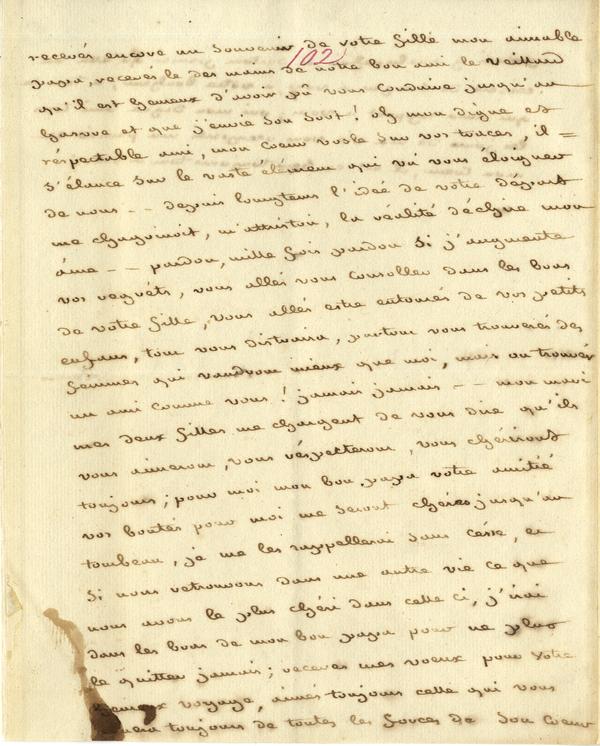 102
recevés encore un souvenir de votre fille mon aimable
papa, recevés le des mains de notre bon ami le veillard
qu'il est heureux d'avoir pû vous conduire jusqu'au
havre et que j'envie son sort! oh mon digne et
réspectable ami, mon coeur vosle sur vos traces, il =
s'élance sur le vaste élément qui va vous éloigner
de nous - - depuis longtems l'idée de votre départ
me chagrinoit, m'attristoit, la réalité déchire mon
âme - - pardon, mille fois pardon si j'augmente
vos regréts, vous allés vous consoller dans les bras
de votre fille, vous allés estre entourés de vos petits
enfans, tout vous distraira, partout vous trouverés des
femmes qui vaudront mieux que moi, mais ou trouver
un ami comme vous! jamais jamais - - mon mari
mes deux filles me chargent de vous dire qu'ils
vous aimeront, vous réspecteront, vous chériront
toujours; pour moi mon bon papa votre amitié
vos bontés pour moi me seront chéres jusqu'au
tombeau, je me les rappellerai sans césse, et
si nous retrouvons dans une autre vie ce que
nous avons le plus chéri dans celle ci, j'irai
dans les bras de mon bon papa pour ne plus
le quitter jamais; recevés mes voeux pour votre
heureux voyage, aimés toujours celle qui vous
aimera toujours de toutes les forces de son coeur